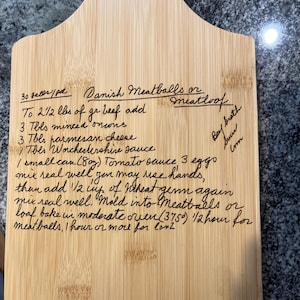 Danish Meatballs or
Meatloaf
To 2 1/2 lbs of gr beef add
3 Tbls minced onions
3 Tbls parmesan cheese
1 Tbls Worchestershire sauce
1 small can (8oz) Tomato sauce 3 eggs
mix real well you may use hands,
then add 1/2 cup of Wheat germ again
mix real well. Mold into Meatballs or
loaf bake in moderate oven (375°) 1/2 hour for
meatballs, 1 hour or more for loaf